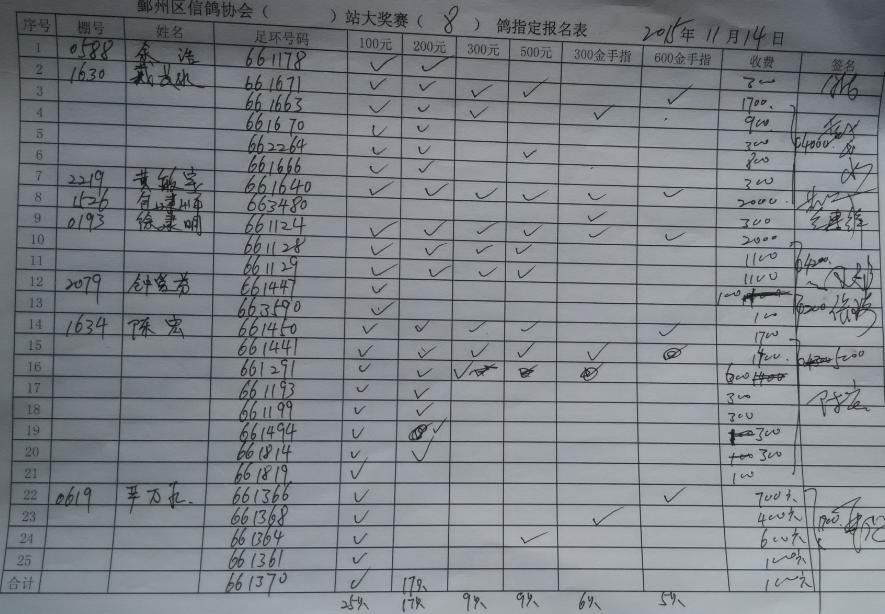 鄞州区信鸽协会（　　　）站大奖赛（ 8 ）鸽指定报名表 2015年11月14日
序号 棚号 姓名 足环号码 100元 200元 300元 500元 300金手指 600金手指 收费 签名
1 0588 余 浩 661178 ✓ ✓ 300
2 1630 661671 ✓ ✓ ✓ ✓ ✓ 1700
3 661663 ✓ ✓ ✓ ✓ 900
4 661670 ✓ ✓ 300
5 662264 ✓ ✓ ✓ 800
6 661666 ✓ ✓ 300
7 2219 黄敏宝 661640 ✓ ✓ ✓ ✓ ✓ ✓ 2000
8 1526 663480 ✓ 300
9 0193 徐康明 661124 ✓ ✓ ✓ ✓ ✓ ✓ 2000
10 661128 ✓ ✓ ✓ ✓ 1100
11 661129 ✓ ✓ ✓ ✓ 1100
12 2079 661447 ✓ 100
13 663590 ✓ 100
14 1634 陈宏 661450 ✓ ✓ ✓ ✓ ✓ 1700
15 661441 ✓ ✓ ✓ ✓ ✓ 1400
16 661291 ✓ ✓ ✓ 600
17 661193 ✓ ✓ 300
18 661199 ✓ ✓ 300
19 661494 ✓ ✓ 300
20 661814 ✓ ✓ 300
21 661819 ✓ 100
22 0619 661366 ✓ ✓ 700元
23 661368 ✓ ✓ 400元
24 661364 ✓ ✓ 600元
25 661361 ✓ 100元
合计 661370 ✓ 17 100元
25 17 9 9 6 5